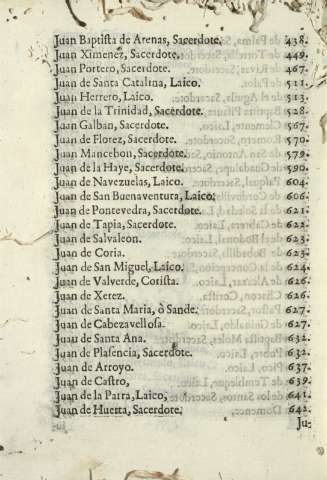 Juan Baptista de Arenas, Sacerdote. 438.
Juan Ximenez, Sacerdote. 449.
Juan Portero, Sacerdote. 467.
Juan de Santa Catalina, Laico. 511.
Juan Herrero, Laico. 513.
Juan de la Trinidad, Sacerdote. 528.
Juan Galban, Sacerdote. 567.
Juan de Florez, Sacerdote. 570.
Juan Mancebon, Sacerdote. 579.
Juan de la Haye, Sacerdote. 590.
Juan de Navezuelas, Laico. 604.
Juan de San Buenaventura, Laico. 606.
Juan de Pontevedra, Sacerdote. 621.
Juan de Tapia, Sacerdote. 622.
Juan de Salvaleon. 623.
Juan de Coria. 623.
Juan de San Miguel, Laico. 624.
Juan de Valverde, Corista. 626.
Juan de Xerez. 626.
Juan de Santa Maria, ò Sande. 627.
Juan de Cabezavellosa. 627.
Juau de Santa Ana. 632.
Juan de Plasencia, Sacerdote. 632.
Juan de Arroyo. 637.
Juan de Castro, 639.
Juan de la Parra, Laico, 641.
Juan de Huerta, Sacerdote. 642.
Ju-